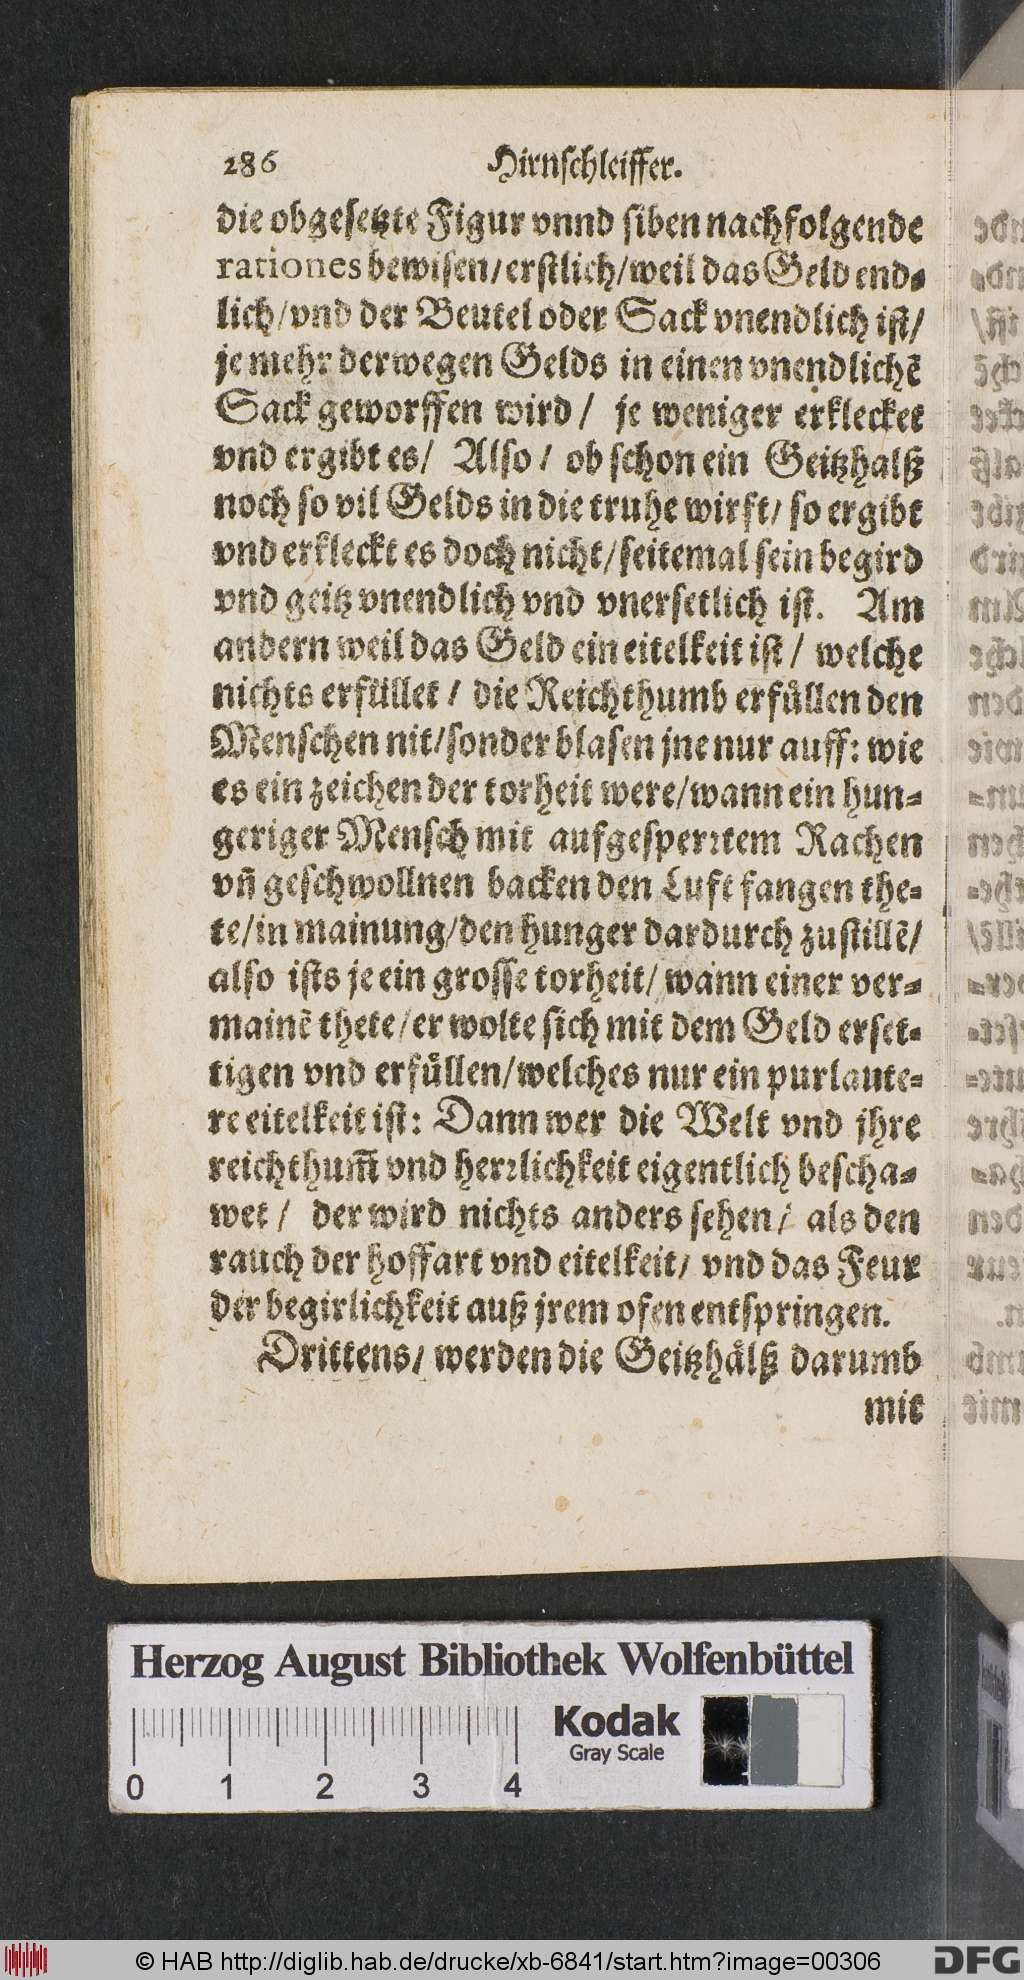 286 Hirnſchleiffer.
die obgeſetzte Figur vnnd ſiben nachfolgende
rationes bewiſen/erſtlich/weil das Geld end-
lich/vnd der Beutel oder Sack vnendlich iſt/
je mehr derwegen Gelds in einen vnendlichẽ
Sack geworffen wird/ je weniger erklecket
vnd ergibt es/ Alſo/ ob ſchon ein Geitzhalß
noch ſo vil Gelds in die truhe wirft/ ſo ergibt
vnd erkleckt es doch nicht/ſeitemal ſein begird
vnd geitz vnendlich vnd vnerſetlich iſt. Am
andern weil das Geld ein eitelkeit iſt/ welche
nichts erfüllet/ die Reichthumb erfuͤllen den
Menſchen nit/ſonder blaſen jne nur auff: wie
es ein zeichen der torheit were/wann ein hun-
geriger Menſch mit aufgeſperꝛtem Rachen
vñ geſchwollnen backen den Luft fangen the-
te/in mainung/den hunger dardurch zuſtillẽ/
alſo iſts je ein groſſe torheit/ wann einer ver-
mainẽ thete/er wolte ſich mit dem Geld erſet-
tigen vnd erfuͤllen/welches nur ein purlaute-
re eitelkeit iſt: Dann wer die Welt vnd jhre
reichthum̃ vnd herꝛlichkeit eigentlich beſcha-
wet/ der wird nichts anders ſehen/ als den
rauch der hoffart vnd eitelkeit/ vnd das Feur
der begirlichkeit auß jrem ofen entſpringen.
Drittens/ werden die Geitzhaͤlß darumb
mit
Herzog August Bibliothek Wolfenbüttel
Kodak
Gray Scale
0 1 2 3 4
© HAB http://diglib.hab.de/drucke/xb-6841/start.htm?image=00306
DFG